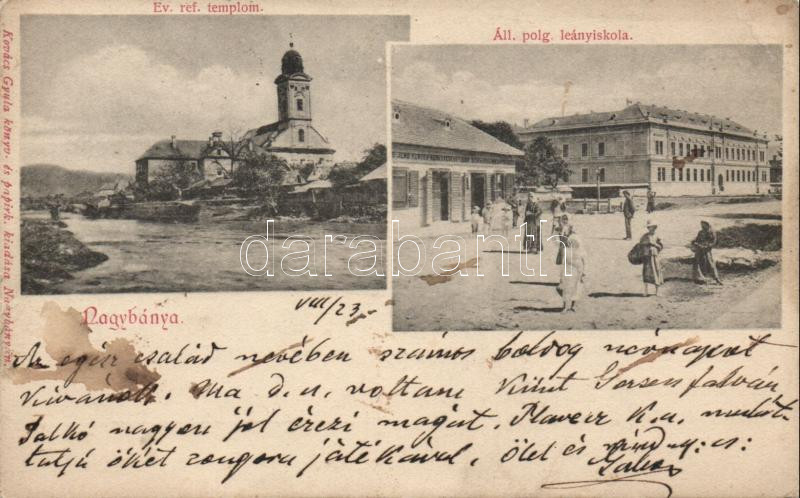 Ev. ref. templom.
Áll. polg. leányiskola.
Kovács Gyula könyv- és papirk. kiadása Nagybányán.
darabanth
Nagybánya.
VIII/23.
Az egész család nevében számos boldog névnapot
kivánok. Ma d. u. voltam künt
Palkó nagyon jól érezi magát. K. u.
őket zongora játékával, ölel és